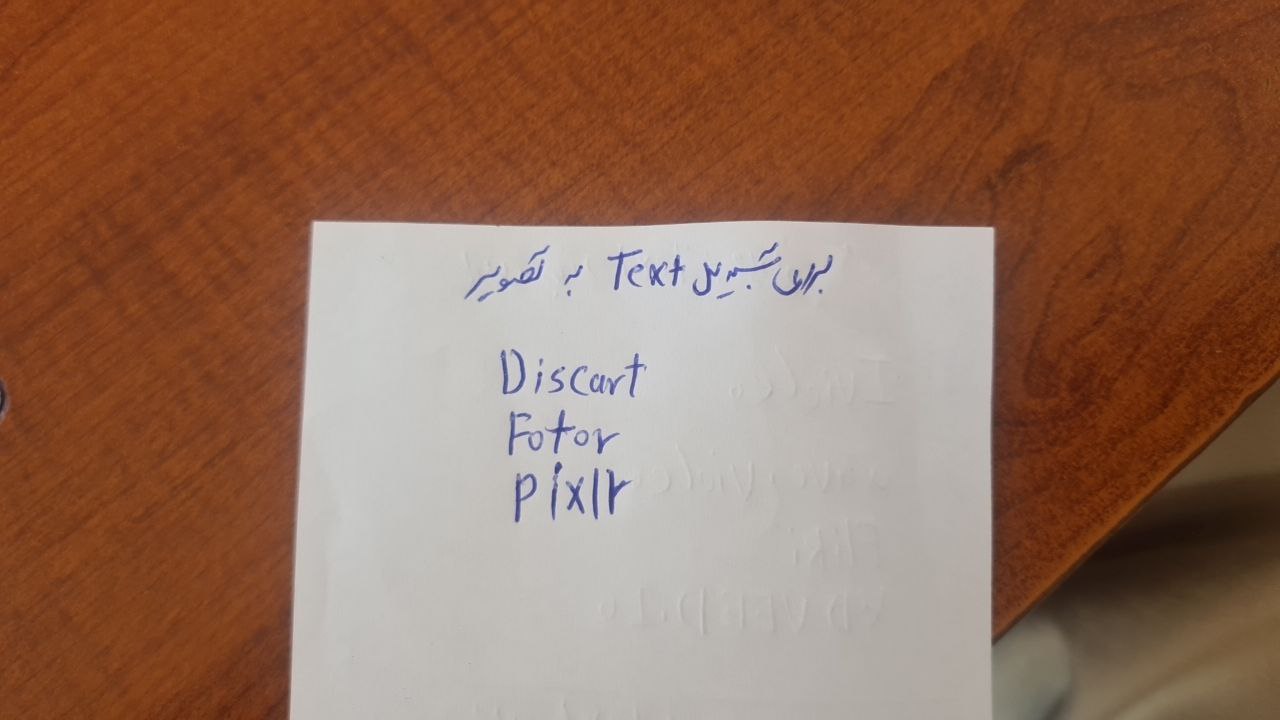 برای تبدیل Text به تصویر
Discart
Fotor
pixlr